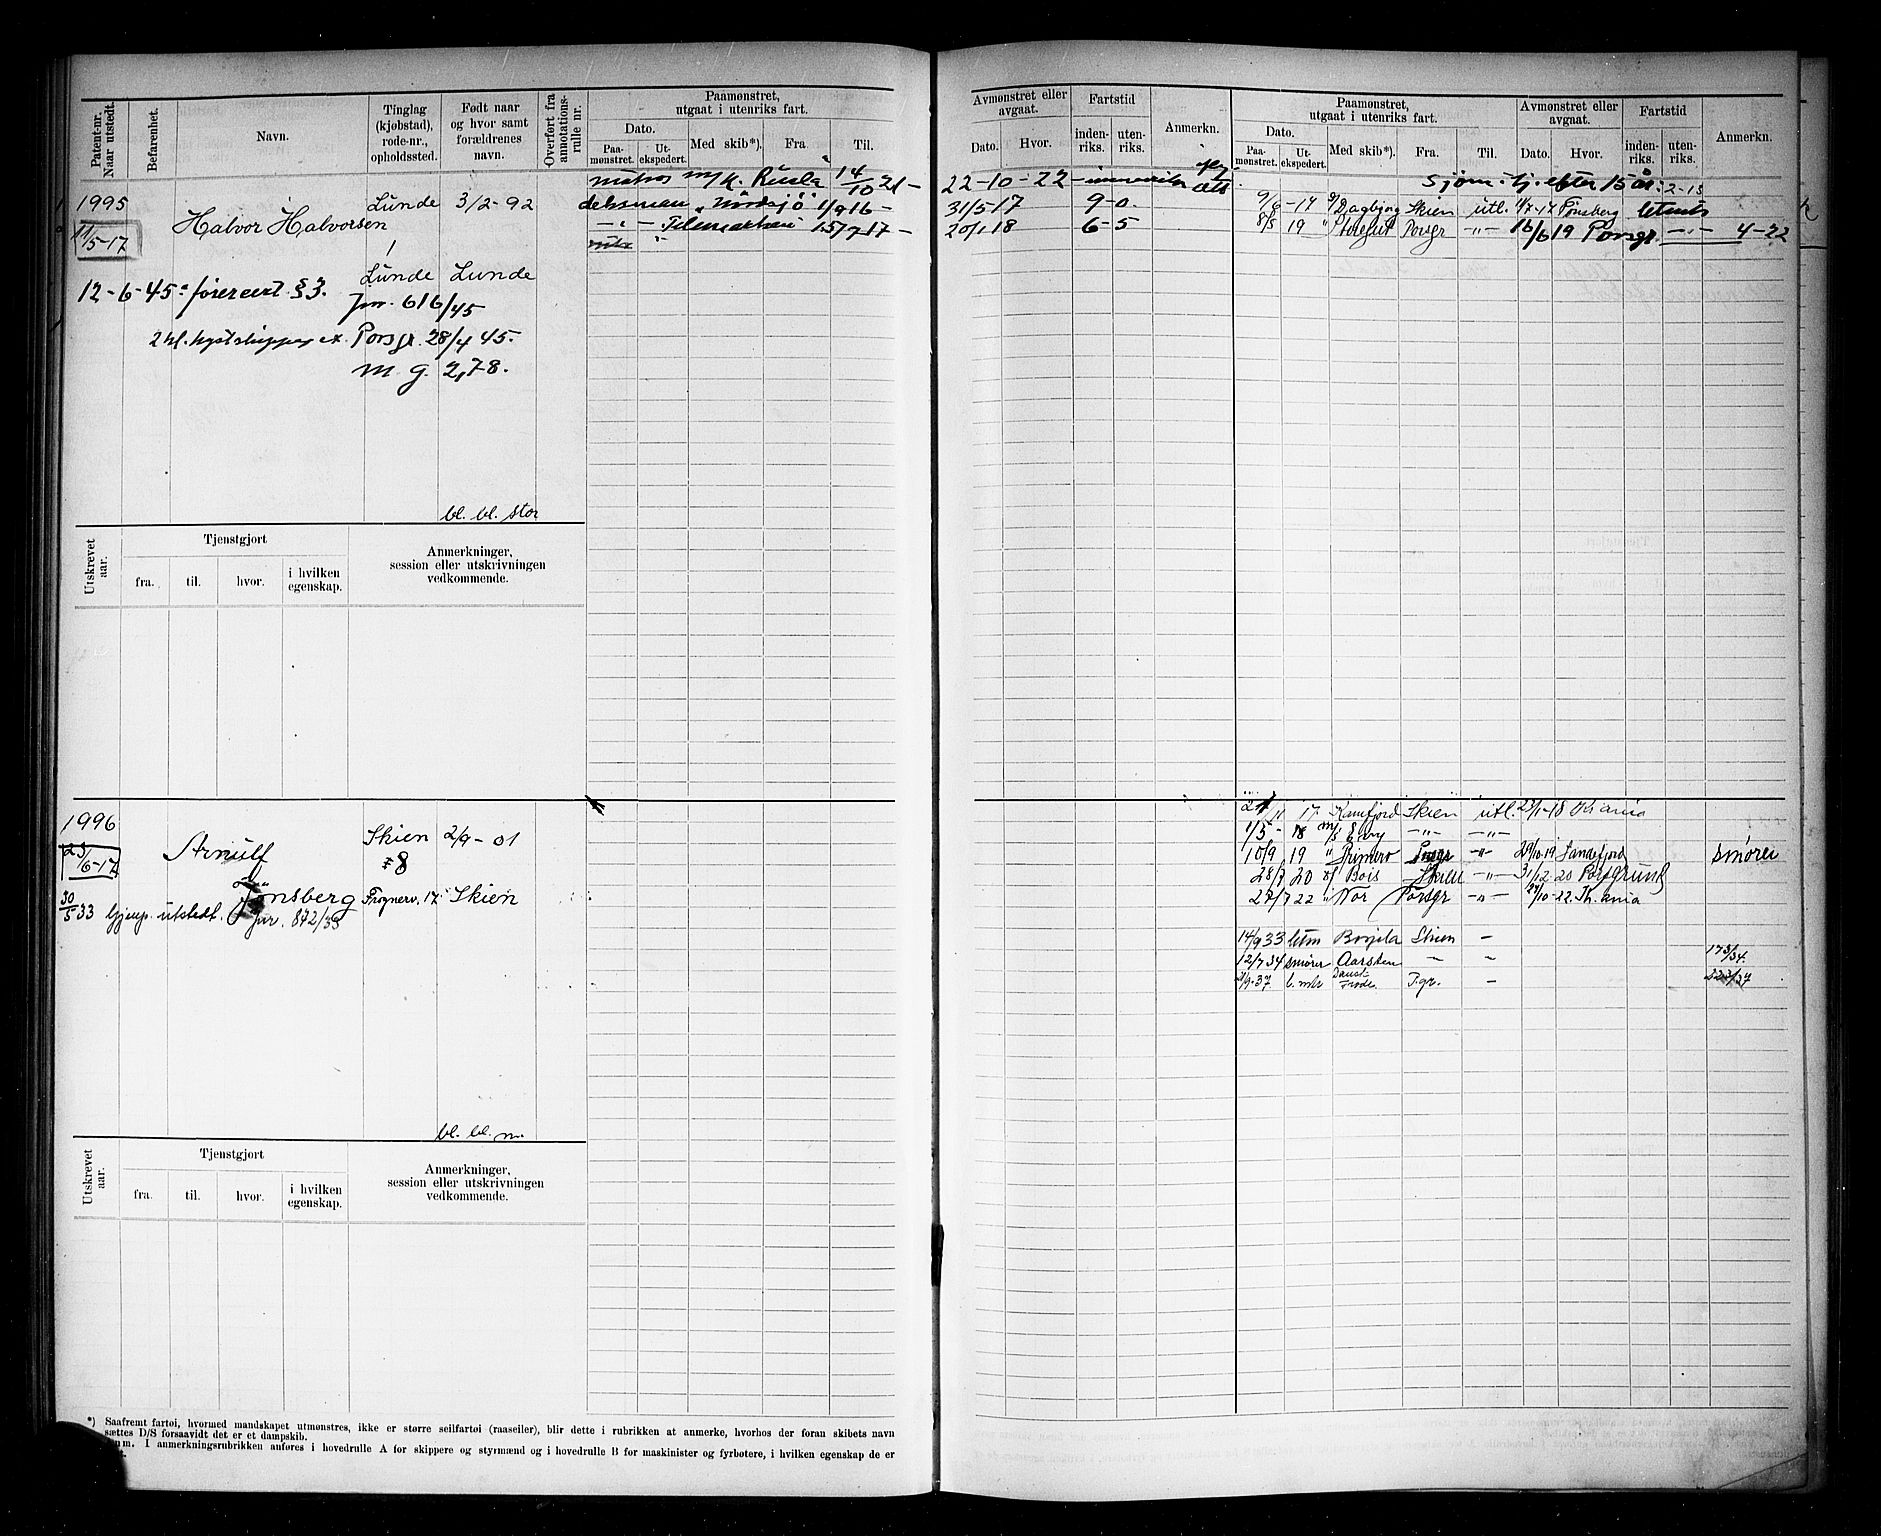 Patent-nr. Naar utstedt.
Befarenhet.
Navn.
Tinglag (kjøbstad), rode-nr., opholdssted.
Født naar og hvor samt forældrenes navn.
Overført fra annotations-rulle nr.
Paamønstret, utgaat i utenriks fart.
Dato.
Paa-mønstret.
Ut-ekspedert.
Med skib*).
Fra.
Til.
1995
11/5-17
Halvor Halvorsen
Lunde 3/2-92
Lunde Lunde
12-6-45: førercert §3.
Jnr. 616/45
2 kl. kystskipper ex. Porsgr. 28/4 45.
m g. 2,78.
bl. bl. stor
matros m/k. 14/10 21 -
"Nordsjö" 1/9 16 -
15/7 17 -
Utskrevet aar.
Tjenstgjort
fra.
til.
hvor.
i hvilken egenskap.
Anmerkninger, session eller utskrivningen vedkommende.
1996
23/6-17
Arnulf
Jønsberg
Skien 2/9-01
#8
Frognerv. 17 Skien
30/5 33 utstedt. Jnr. 872/33
bl. bl. m.
Utskrevet aar.
Tjenstgjort
fra.
til.
hvor.
i hvilken egenskap.
Anmerkninger, session eller utskrivningen vedkommende.
*) Saafremt fartøi, hvormed mandskapet utmønstres, ikke er større seilfartøi (raaseiler), blir dette i rubrikken at anmerke, hvorhos der foran skibets navn
sættes D/S forsaavidt det er et dampskib.
I anmerkningsrubrikken anføres i hovedrulle A for skippere og styrmænd og i hovedrulle B for maskinister og fyrbøtere, i hvilken egenskap de er
Avmønstret eller avgaat.
Dato.
Hvor.
Fartstid
inden-riks.
uten-riks.
Anmerkn.
Paamønstret, utgaat i utenriks fart.
Dato.
Paa-mønstret.
Ut-ekspedert.
Med skib*).
Fra.
Til.
Avmønstret eller avgaat.
Dato.
Hvor.
Fartstid
inden-riks.
uten-riks.
Anmerkn.
22-10-22
sjøm. tj. efter 15 år: 2-13
31/5 17 9-0.
9/6-17 Dagbjørg Skien utl. Tønsberg
20/1 18 6-5
8/5 19 Porsgr -"- 16/6 19 Porsgr. -"- 4-22
17 Skien utl. Kr.ania
1/5-18 m/s -"- -"-
10/9 19 " Primero Porsgr -"- 29/10 19 Sandefjord smører
28/7 20 Bois Skien -"- 31/12 20 Porsgrund
27/7 22 " Nor Porsgr -"- 27/10-22. Kr.ania
14/9 33 Skien -
12/7 34 smører Aarsten - - 173/34.
/9-37 Frode. P.gr. -